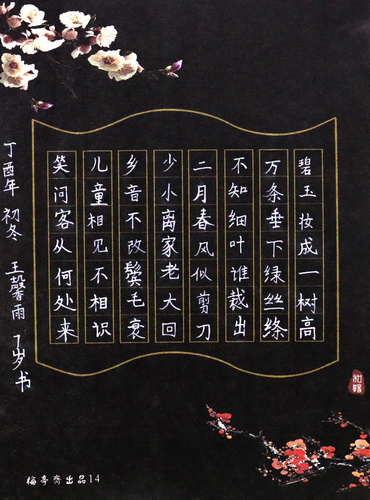 碧玉妆成一树高
万条垂下绿丝绦
不知细叶谁裁出
二月春风似剪刀
少小离家老大回
乡音不改鬓毛衰
儿童相见不相识
笑问客从何处来
丁酉年 初冬 王馨雨 7岁书
梅亭斋出品14